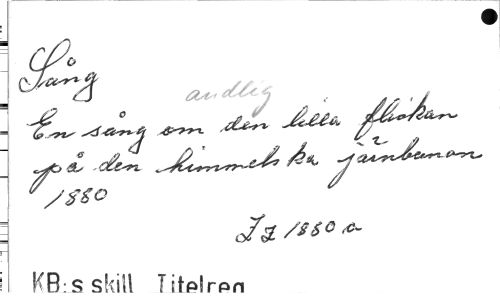 Sång
andlig
En sång om den lilla flickan
på den himmelska järnbanan
1880
1880 a
KB:s skill Titelreg